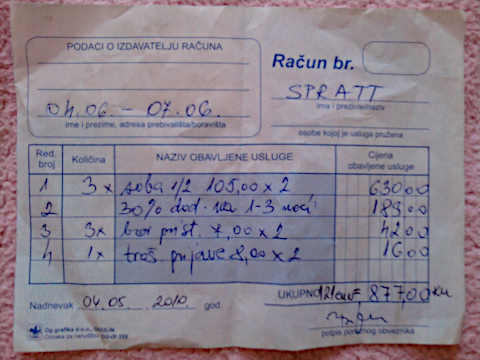 PODACI O IZDAVATELJU RAČUNA
Račun br.
04.06. - 07.06.
ime i prezime, adresa prebivališta/boravišta
SPRATT
ime i prezime/naziv
osobe kojoj je usluga pružena
Red. broj Količina NAZIV OBAVLJENE USLUGE Cijena obavljene usluge
1 3x soba 1/2 105,00 x 2 630 00
2 30% dod. za 1-3 noći 189 00
3 3x bor. prist. 7,00 x 2 42 00
4 1x troš. prijave 8,00 x 2 16 00
UKUPNO 877 00 KN
Nadnevak 04.05. 2010. god.
potpis poreznog obveznika
Og grafika d.o.o., OGULIN
Oznaka za narudžbu: